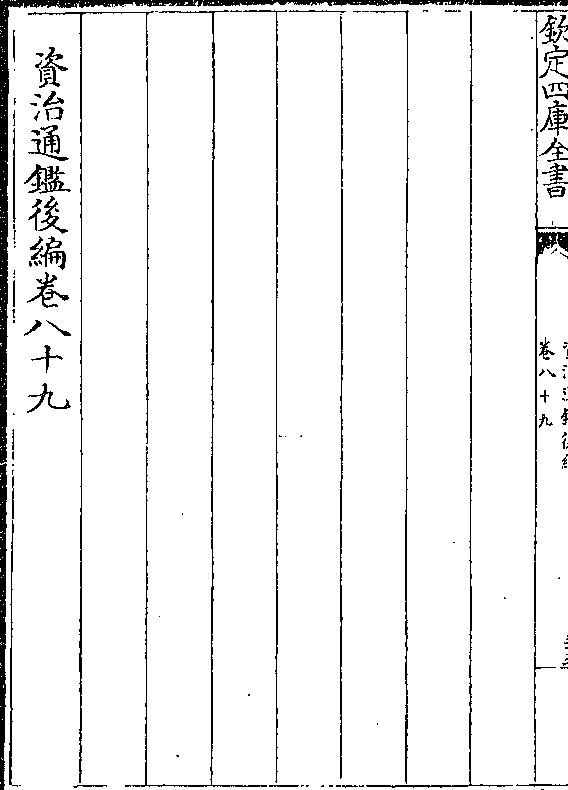 欽定四庫全書
資治通鑑後編
卷八十九
資治通鑑後編卷八十九